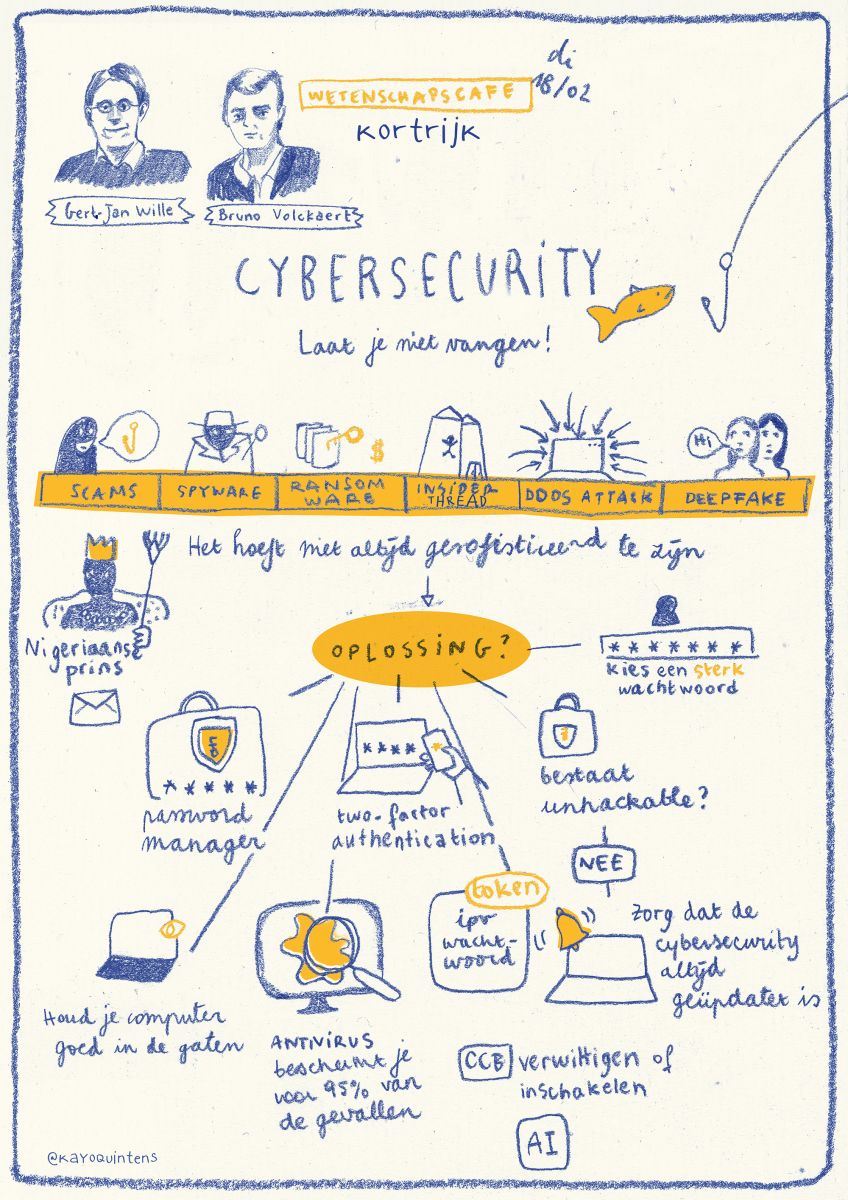 di
18/02
WETENSCHAPSCAFE
Kortrijk
Gert-Jan Wille
Bruno Volckaert
CYBERSECURITY
Laat je niet vangen!
Hi
SCAMS
SPYWARE
RANSOM
WARE
INSIDER
THREAD
DDOS ATTACK
DEEPFAKE
$
Het hoeft niet altijd gesofisticeerd te zijn
Nigeriaanse
prins
OPLOSSING?
*******
kies een sterk
wachtwoord
*****
password
manager
****
two-factor
authentication
bestaat
unhackable?
NEE
token
ipv
wacht-
woord
Zorg dat de
cybersecurity
altijd
geüpdatet is
Houd je computer
goed in de gaten
ANTIVIRUS
beschermt je
voor 95% van
de gevallen
CCB verwittigen of
inschakelen
AI
@KAYOQUINTENS